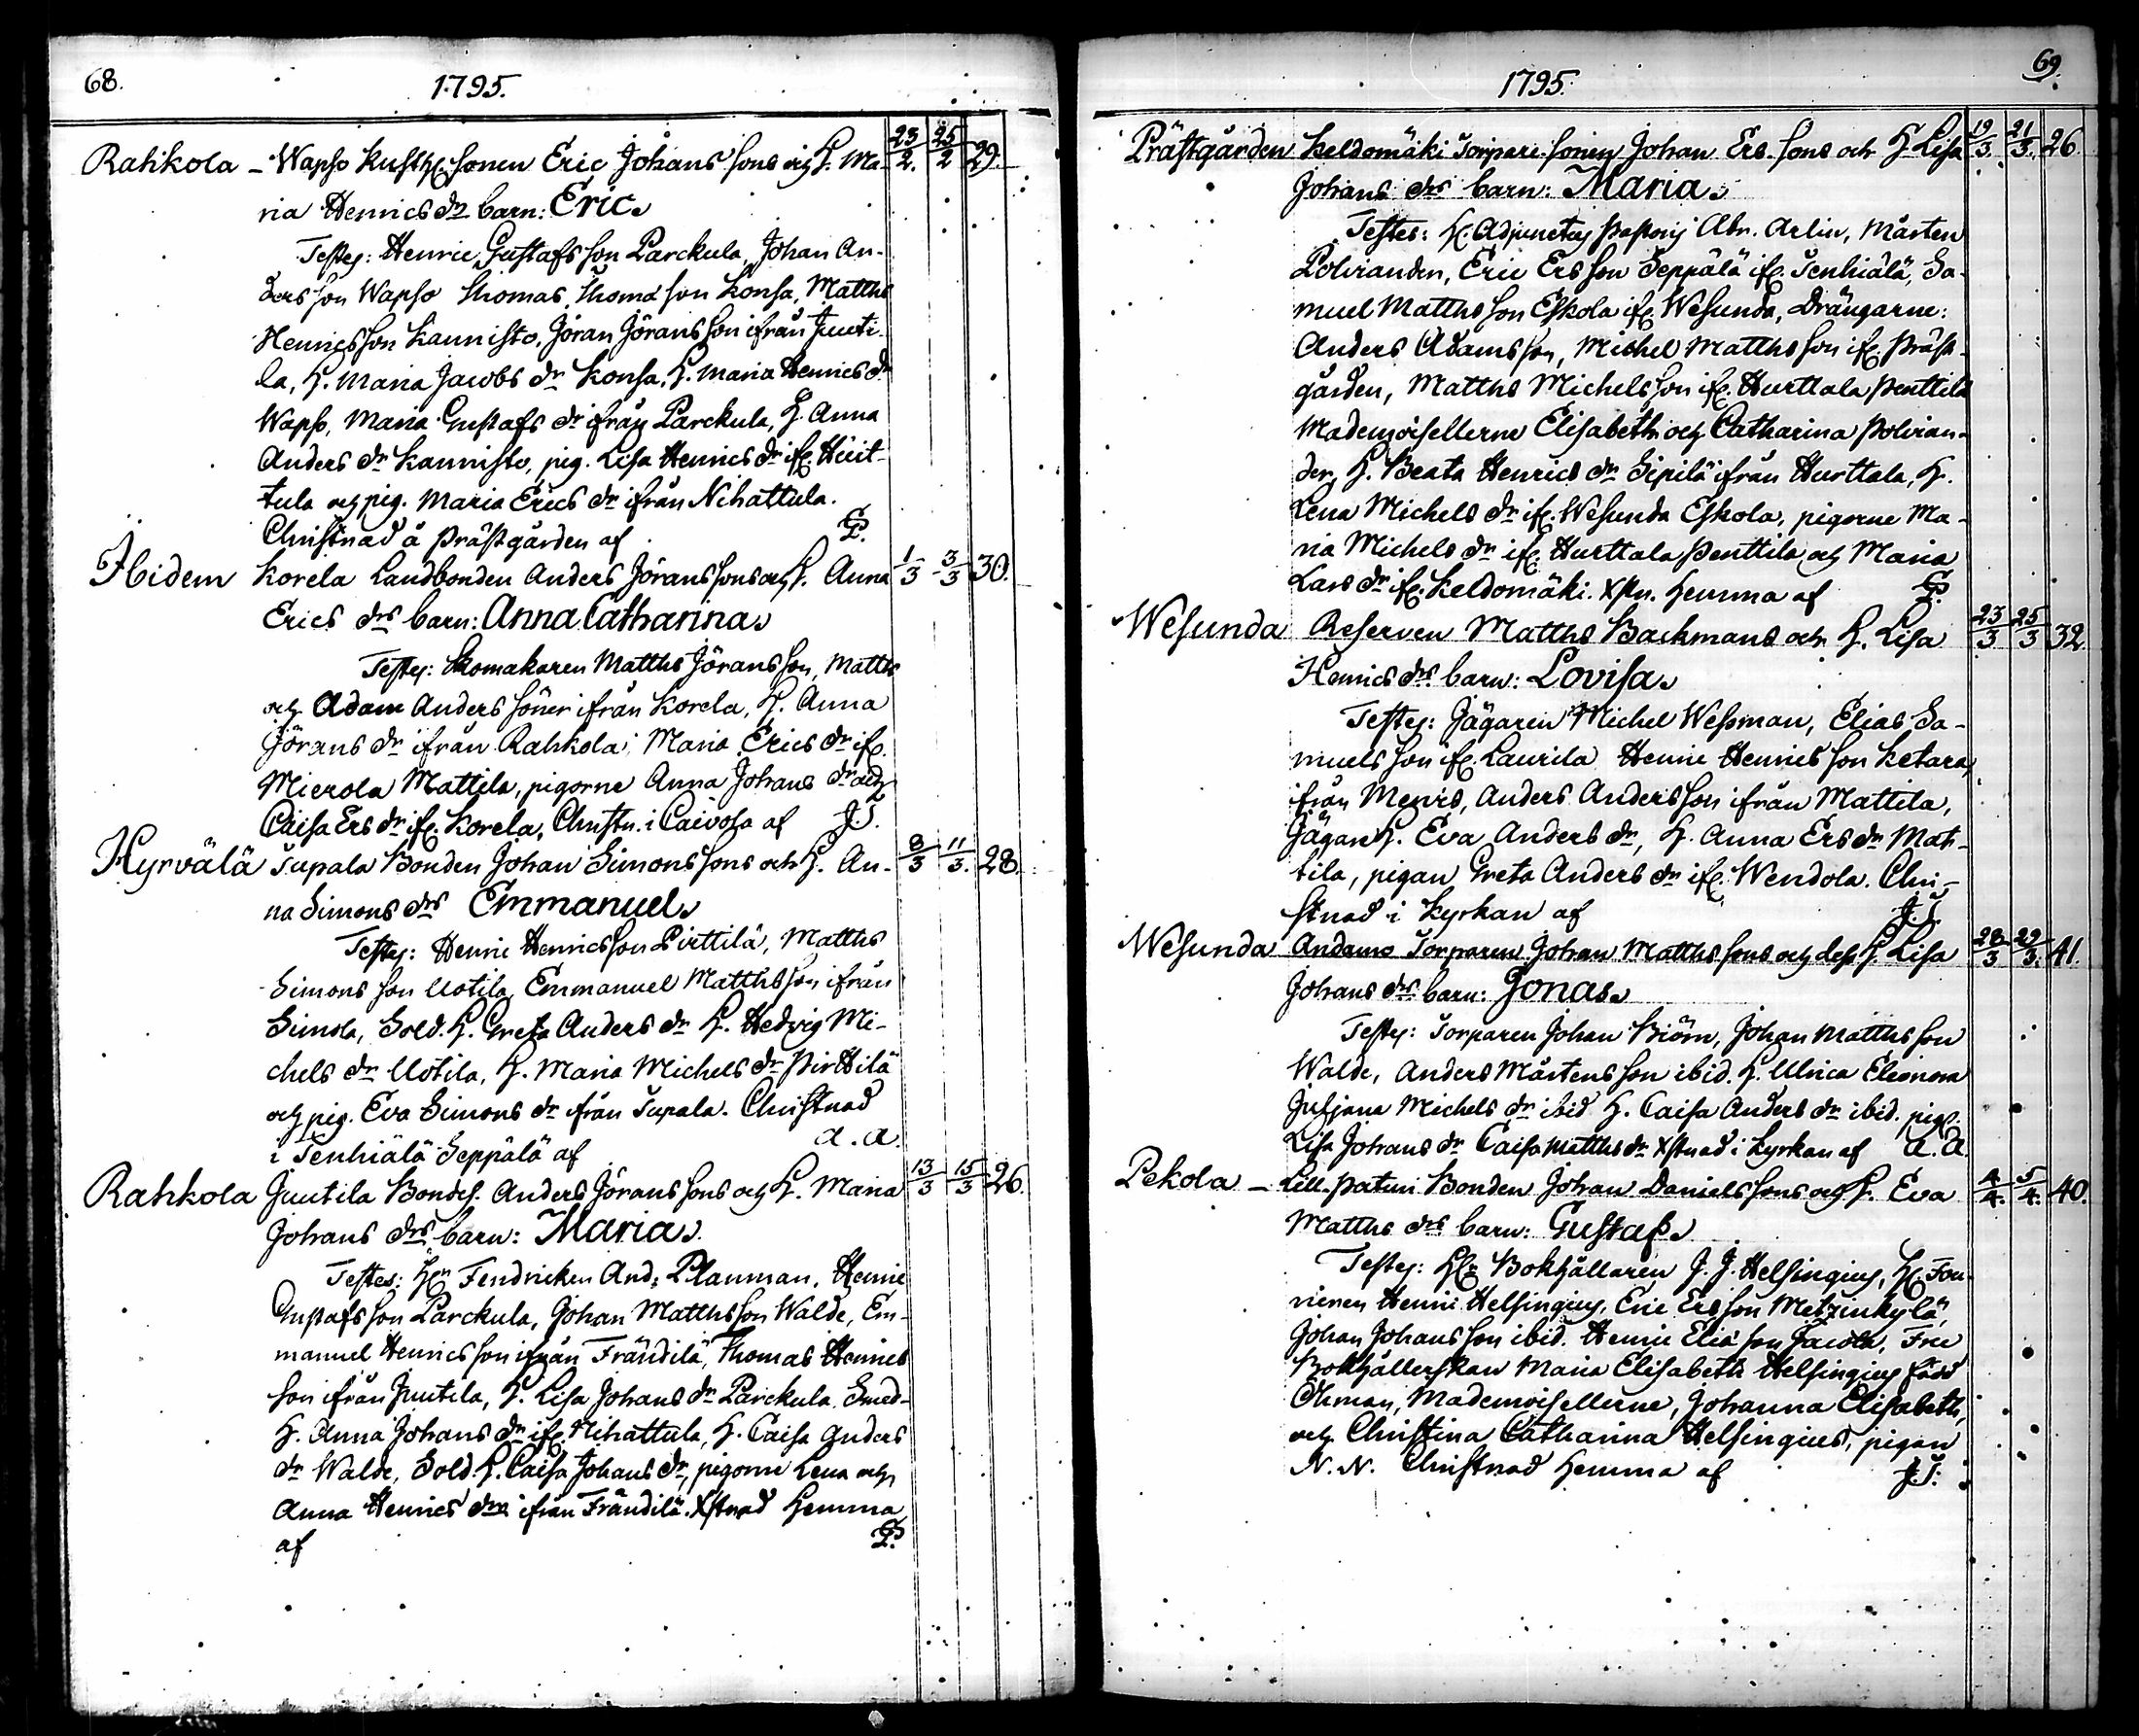 68.
1795.
Rahkola – Wapso Kusk sonen Eric Johans sons och H. Ma- 23/2. 25/2 29.
ria Henrics drs barn: Eric.
Testes: Henric Gustafs son Parckula, Johan An-
ders son Wapso Thomas Thomæ son Konsa, Matths
Henrics son Kannisto, Jöran Jörans son ifrån Juuti-
la, H. Maria Jacobs dr Konsa, H. Maria Henrics dr
Wapso, Maria Gustafs dr ifrån Parckula, H. Anna
Anders dr Kannisto, pig. Lisa Henrics dr ifr. Hiit-
tula och pig. Maria Erics dr ifrån Nihattula.
Christnad å Prästgården af
Ibidem Korela Landbonden Anders Jörans sons och H. Anna 1/3 3/3 30.
Erics drs barn: Anna Catharina
Testes: Skomakaren Matths Jörans son, Matths
och Adam Anders söner ifrån Korela, H. Anna
Jörans dr ifrån Rahkola, Maria Erics dr ifr.
Mierola Mattila, pigorne Anna Johans dr och
Caisa Ers dr ifr. Korela, Christn. i Caivosa af J.T.
Hyrvälä Tupala Bonden Johan Simons sons och H. An- 8/3 11/3. 28.
na Simons drs Emmanuel
Testes: Henric Henrics son Pirttilä, Matths
Simons son Uotila, Emmanuel Matths son ifrån
Simola, Sold. H. Greta Anders dr H. Hedvig Mi-
chels dr Uotila, H. Maria Michels dr Pirttilä
och pig. Eva Simons dr ifrån Tupala. Christnad
i Tenhiälä Seppälä af a.a.
Rahkola Juutila Bondes. Anders Jörans sons och H. Maria 13/3 15/3 26.
Johans drs barn: Maria
Testes: Hrn Fendricken And: Planman, Henric
Gustafs son Parckula, Johan Matths son Walde, Em-
manuel Henrics son ifrån Frändilä, Thomas Henrics
son ifrån Juutila, H. Lisa Johans dr Parckula, Smed-
H. Anna Johans dr ifr. Nihattula, H. Caisa Anders
dr Walde, Sold. H. Caisa Johans dr, pigorne Lena och
Anna Henrics drar ifrån Frändilä. Xstnad hemma
af
69.
1795.
Prästgården Keldomäki Torpare sonen Johan Ers sons och H. Lisa 19/3. 21/3. 26.
Johans drs barn: Maria
Testes: H. Adjunctus Pastoris Abr. Arlin, Mårten
Polviander, Eric Ers son Seppälä ifr. Tenhiälä, Sa-
muel Matths son Eskola ifr. Wesunda, Drängarne:
Anders Adams son, Michel Matths son ifr. Präst-
gården, Matths Michels son ifr. Hurttala Penttilä
Mademoisellerne Elisabeth och Catharina Polvian-
der, H. Beata Henrics dr Sipilä ifrån Hurttala, H.
Lena Michels dr ifr. Wesunda Eskola, pigorne Ma-
ria Michels dr ifr. Hurttala Penttilä och Maria
Lars dr ifr. Keldomäki. Xstn. hemma af
Wesunda Reserven Matths Backmans och H. Lisa 23/3 25/3 32
Henrics drs barn: Lovisa
Testes: Jägaren Michel Wessman, Elias Sa-
muels son ifr. Laurila Henric Henrics son Ketara,
ifrån Monis, Anders Anders son ifrån Mattila,
Jägar H. Eva Anders dr, H. Anna Ers dr Mat-
tila, pigan Greta Anders dr ifr. Wendola. Chri-
stnad i kyrkan af J.T.
Wesunda Andamo Torparen Johan Matths sons och dess H. Lisa 28/3 29/3. 41.
Johans drs barn: Jonas
Testes: Torparen Johan Biörn, Johan Matths son
Walde, Anders Mårtens son ibid. H. Ulrica Eleonora
Juljana Michels dr ibid H. Caisa Anders dr ibid. pig.
Lisa Johans dr Caisa Matths dr Xstnad i kyrkan af a.a
Pekola – Lill-Paturi Bonden Johan Daniels sons och H. Eva 4/4. 5/4. 40.
Matths drs barn: Gustaf
Testes: Hr Bokhållaren J. J. Helsingius, H. Fou-
rieren Henric Helsingius, Eric Ers son Metzinkylä,
Johan Johans son ibid. Henric Eliæ son Jacola, Fru
Bokhållerskan Maria Elisabeth Helsingius född
Öhman, Mademoisellerne, Johanna Elisabeth,
och Christina Catharina Helsingius, pigan
N. N. Christnad hemma af J.T.